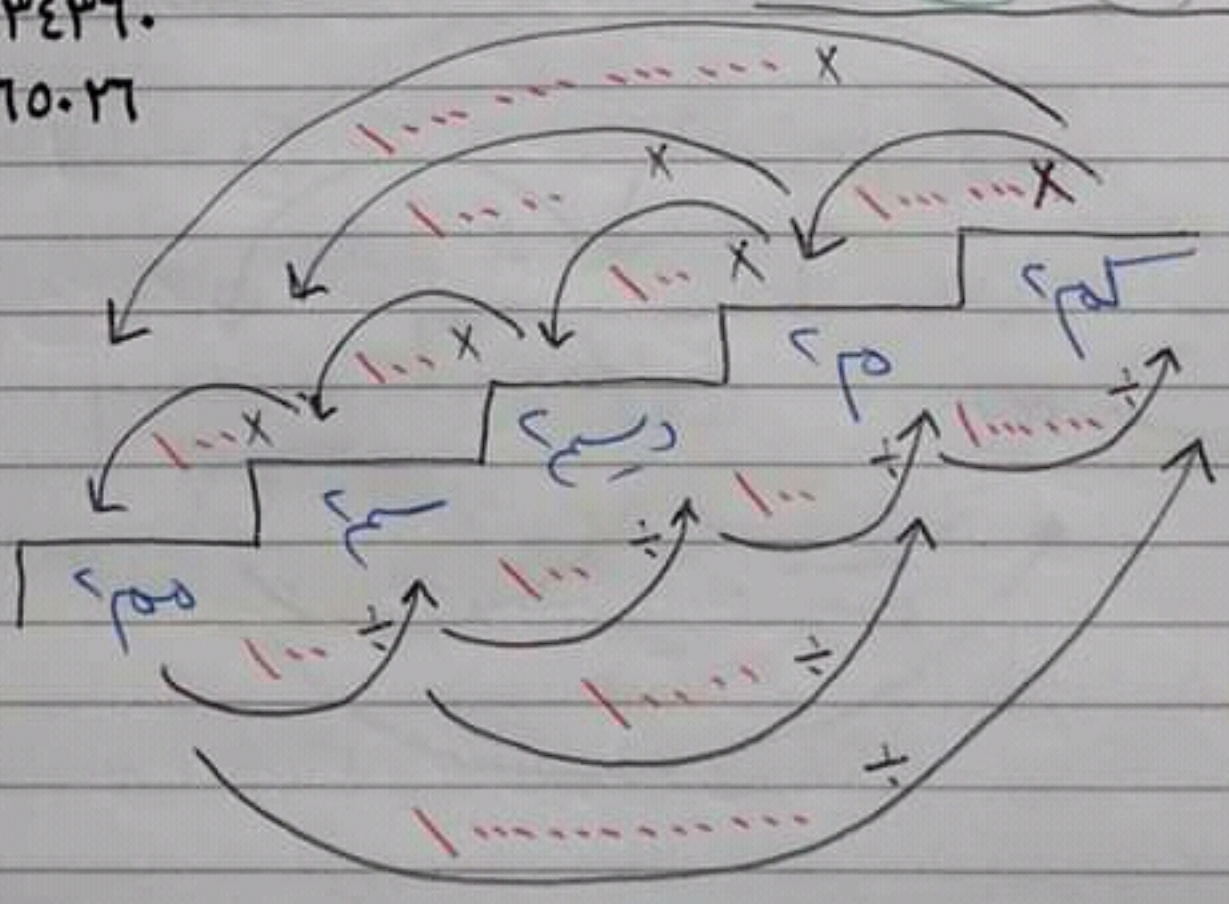 ٣٤٣٦٠
٦٥٠٢٦
× ١٠٠٠ ٠٠٠ ٠٠٠ ٠٠٠
× ١٠٠٠٠
× ١٠٠٠ ٠٠٠
× ١٠٠
× ١٠٠
× ١٠٠
كم²
م²
ديسم²
سم²
مم²
÷ ١٠٠٠٠٠٠
÷ ١٠٠
÷ ١٠٠
÷ ١٠٠
÷ ١٠٠٠٠
÷ ١٠٠٠٠٠٠٠٠٠٠٠٠